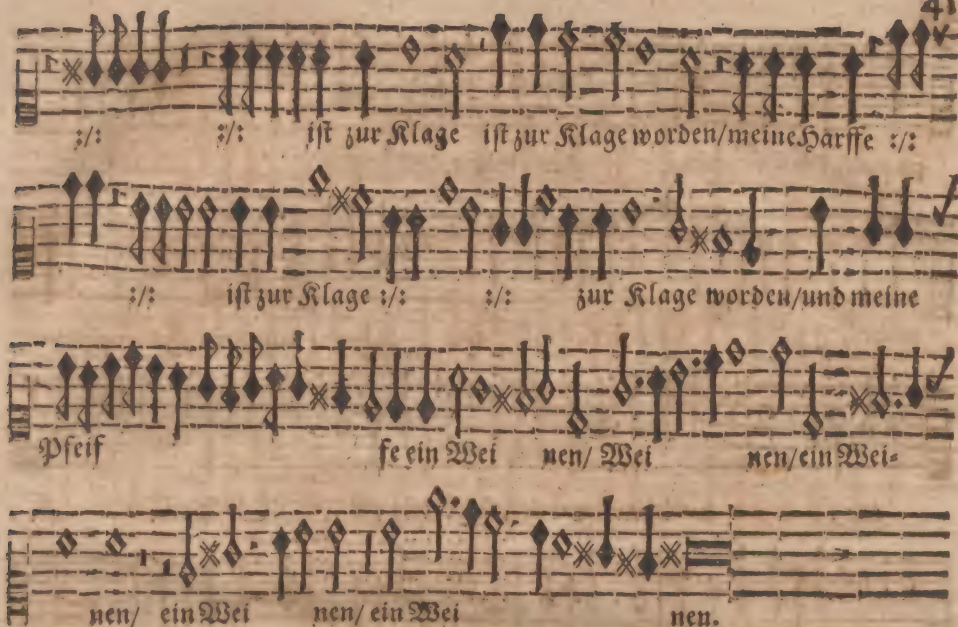 41
:/: :/: ist zur Klage ist zur Klage worden/meine Harffe :/:
:/: ist zur Klage :/: :/: zur Klage worden/und meine
Pfeif fe ein Wei nen/ Wei nen/ein Wei=
nen/ ein Wei nen/ ein Wei nen.